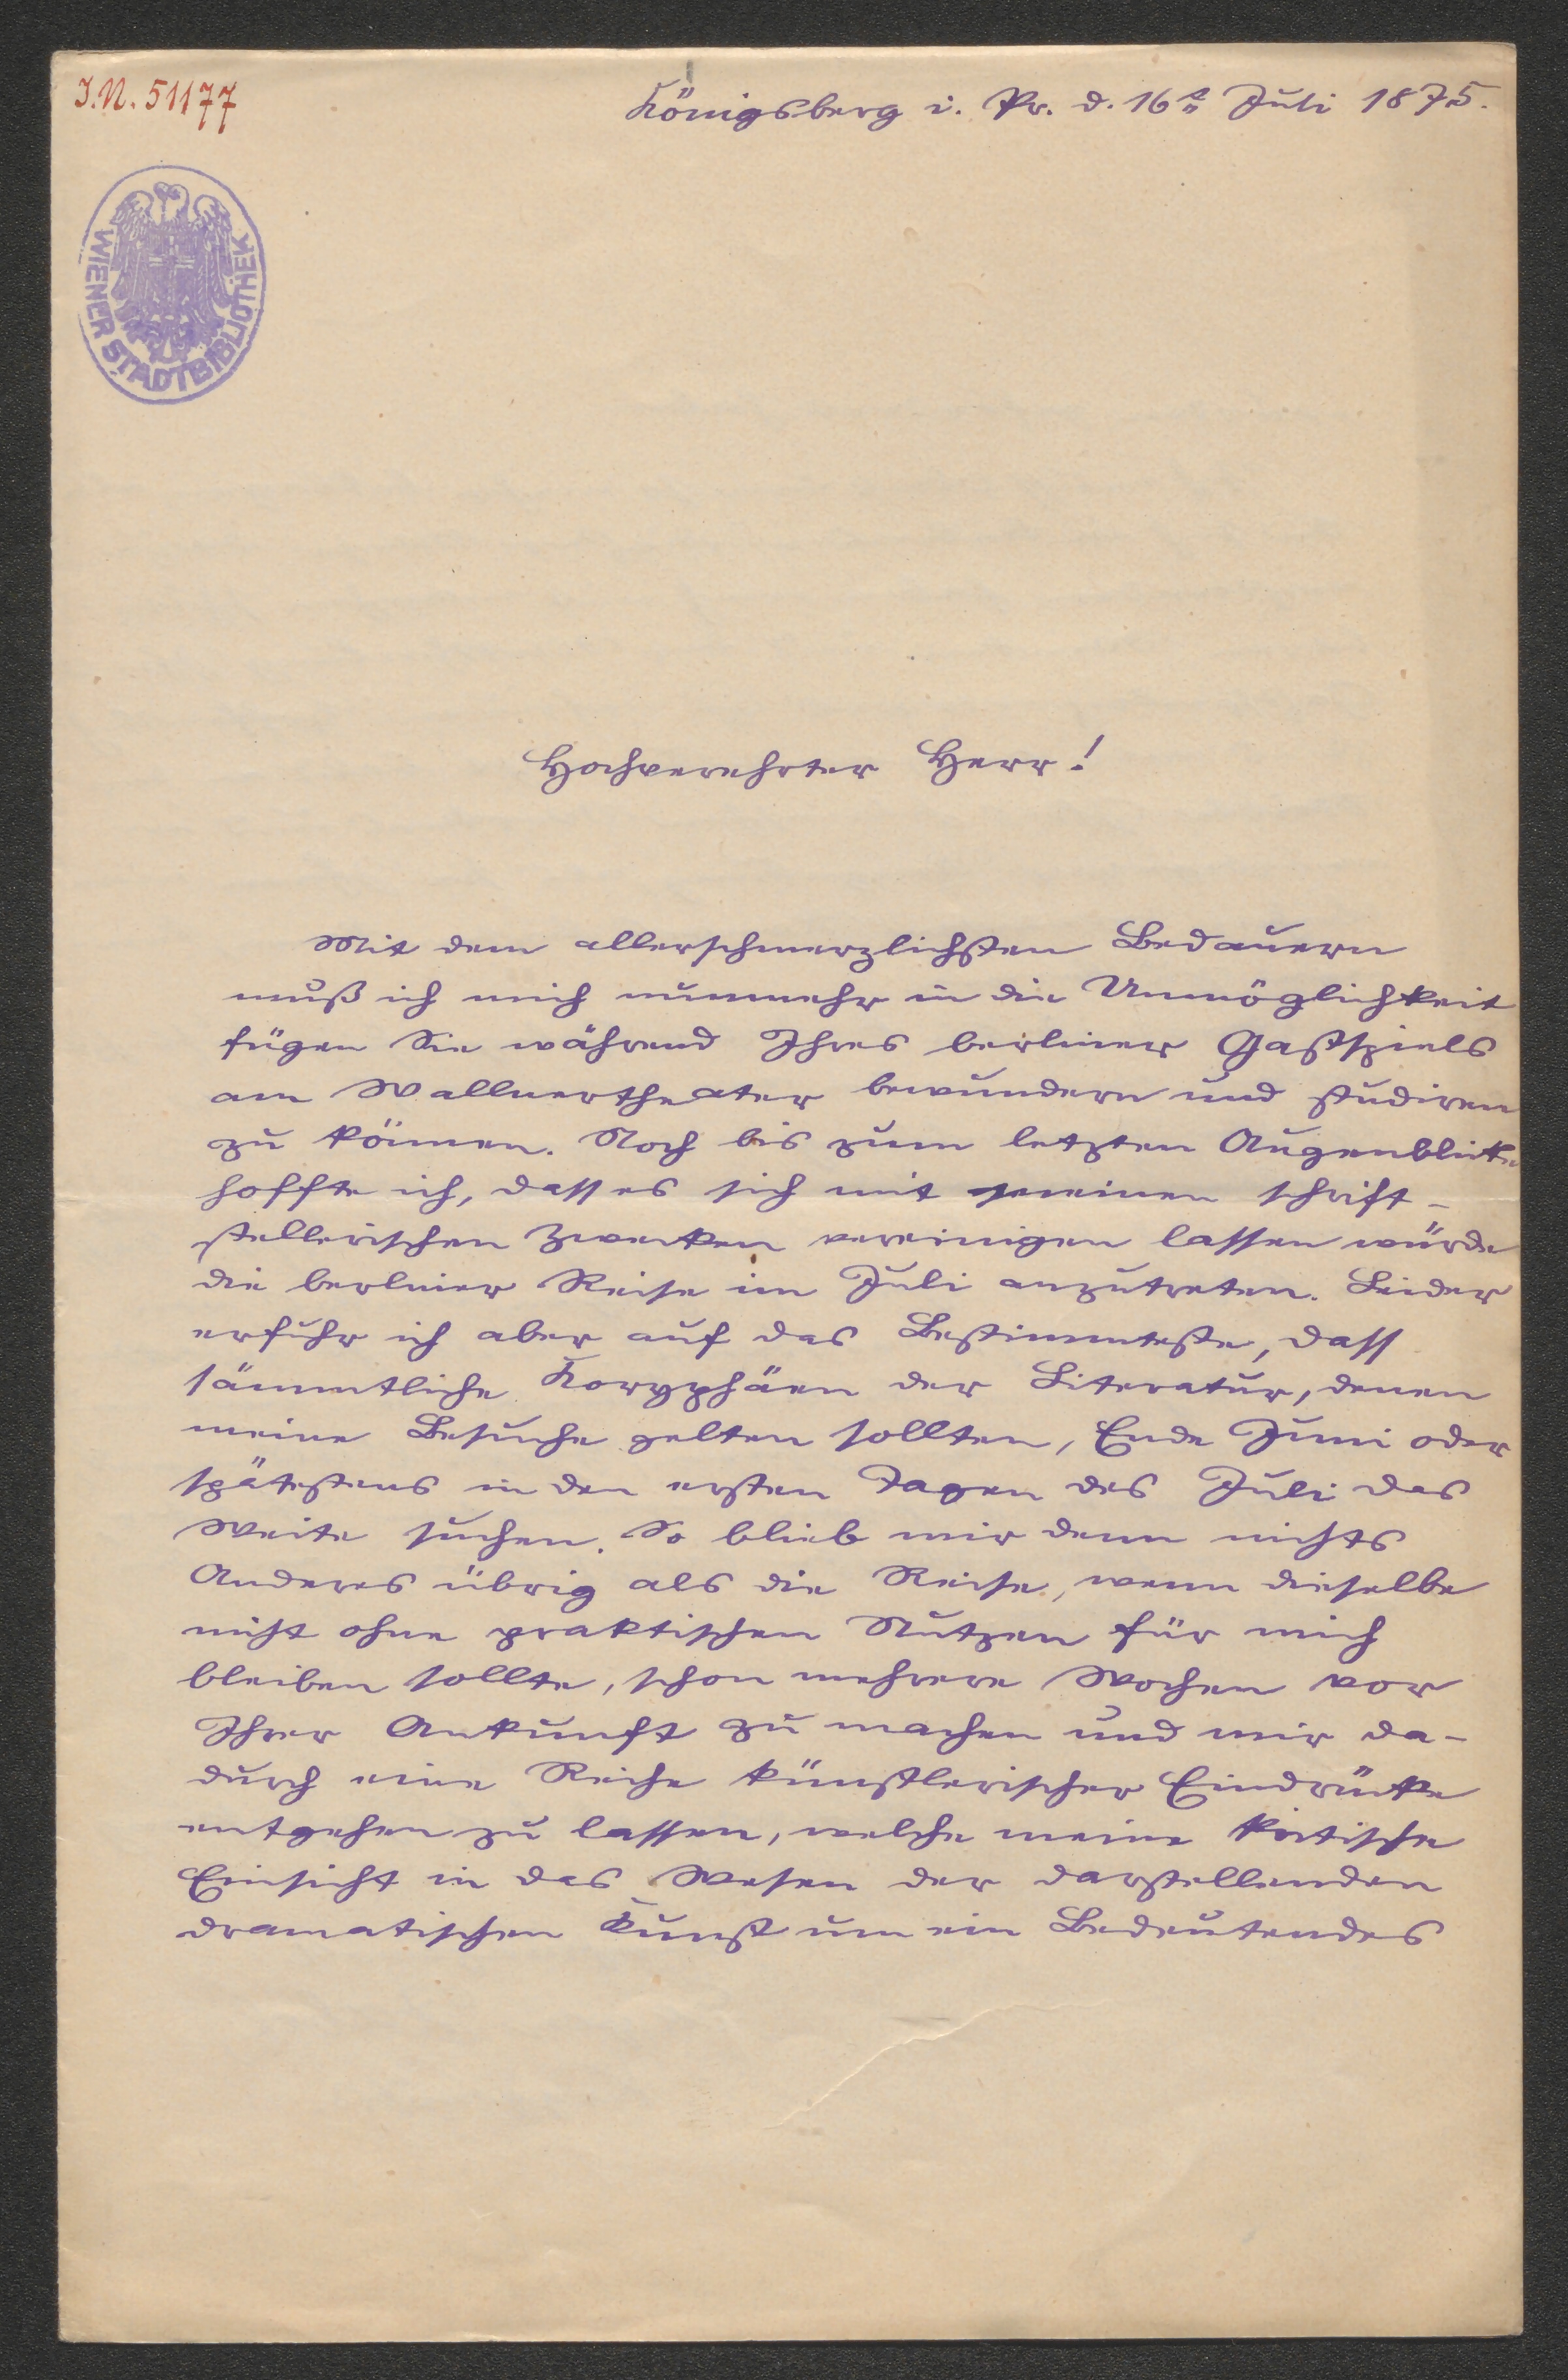 J.N. 51177
Königsberg i. Pr. d. 16t Juli 1875.
WIENER STADTBIBLIOTHEK
Hochverehrter Herr!
Mit dem allerschmerzlichsten Bedauern
muß ich mich nunmehr in die Unmöglichkeit
fügen Sie während Ihres berliner Gastspiels
am Wallnertheater bewundern und studiren
zu können. Noch bis zum letzten Augenblicke
hoffte ich, dass es sich mit meinen schrift-
stellerischen Zwecken vereinigen lassen würde
die berliner Reise im Juli anzutreten. Leider
erfuhr ich aber auf das Bestimmteste, dass
sämmtliche Koryphäen der Literatur, denen
meine Besuche gelten sollten, Ende Juni oder
spätestens in den ersten Tagen des Juli das
Weite suchen. So blieb mir denn nichts
Anderes übrig als die Reise, wenn dieselbe
nicht ohne praktischen Nutzen für mich
bleiben sollte, schon mehrere Wochen vor
Ihrer Ankunft zu machen und mir da-
durch eine Reihe künstlerischer Eindrücke
entgehen zu lassen, welche meine kritische
Einsicht in das Wesen der darstellenden
dramatischen Kunst um ein Bedeutendes